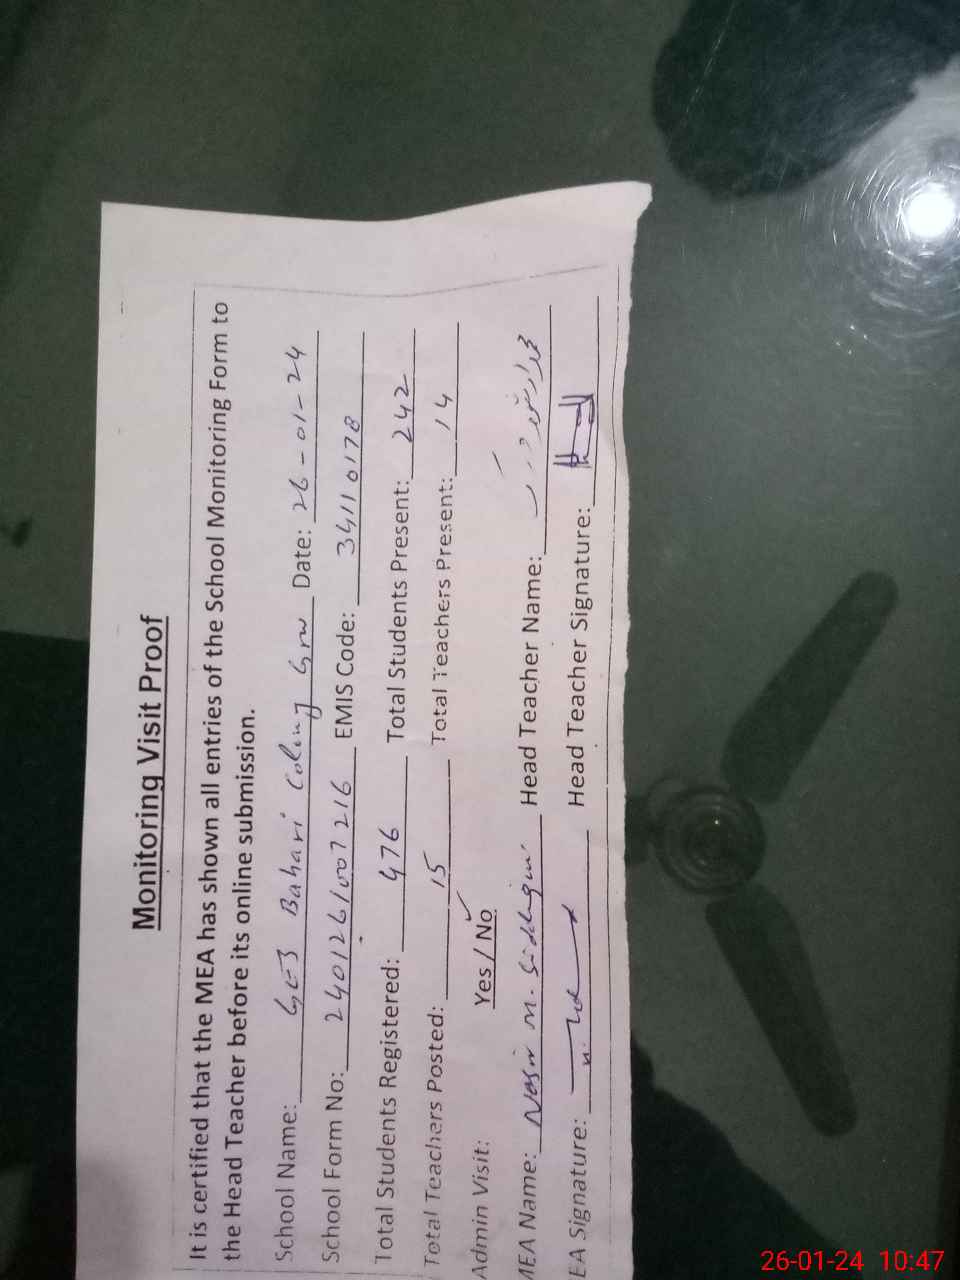 Monitoring Visit Proof
It is certified that the MEA has shown all entries of the School Monitoring Form to
the Head Teacher before its online submission.
School Name: Bahari Colony Grw Date: 26-01-24
School Form No: 2401261007216 EMIS Code: 34110178
Total Students Registered: 476 Total Students Present: 242
Total Teachers Posted: 15 Total Teachers Present: 14
Admin Visit: Yes / No
MEA Name: Nasir M. Head Teacher Name:
EA Signature: Head Teacher Signature:
26-01-24 10:47